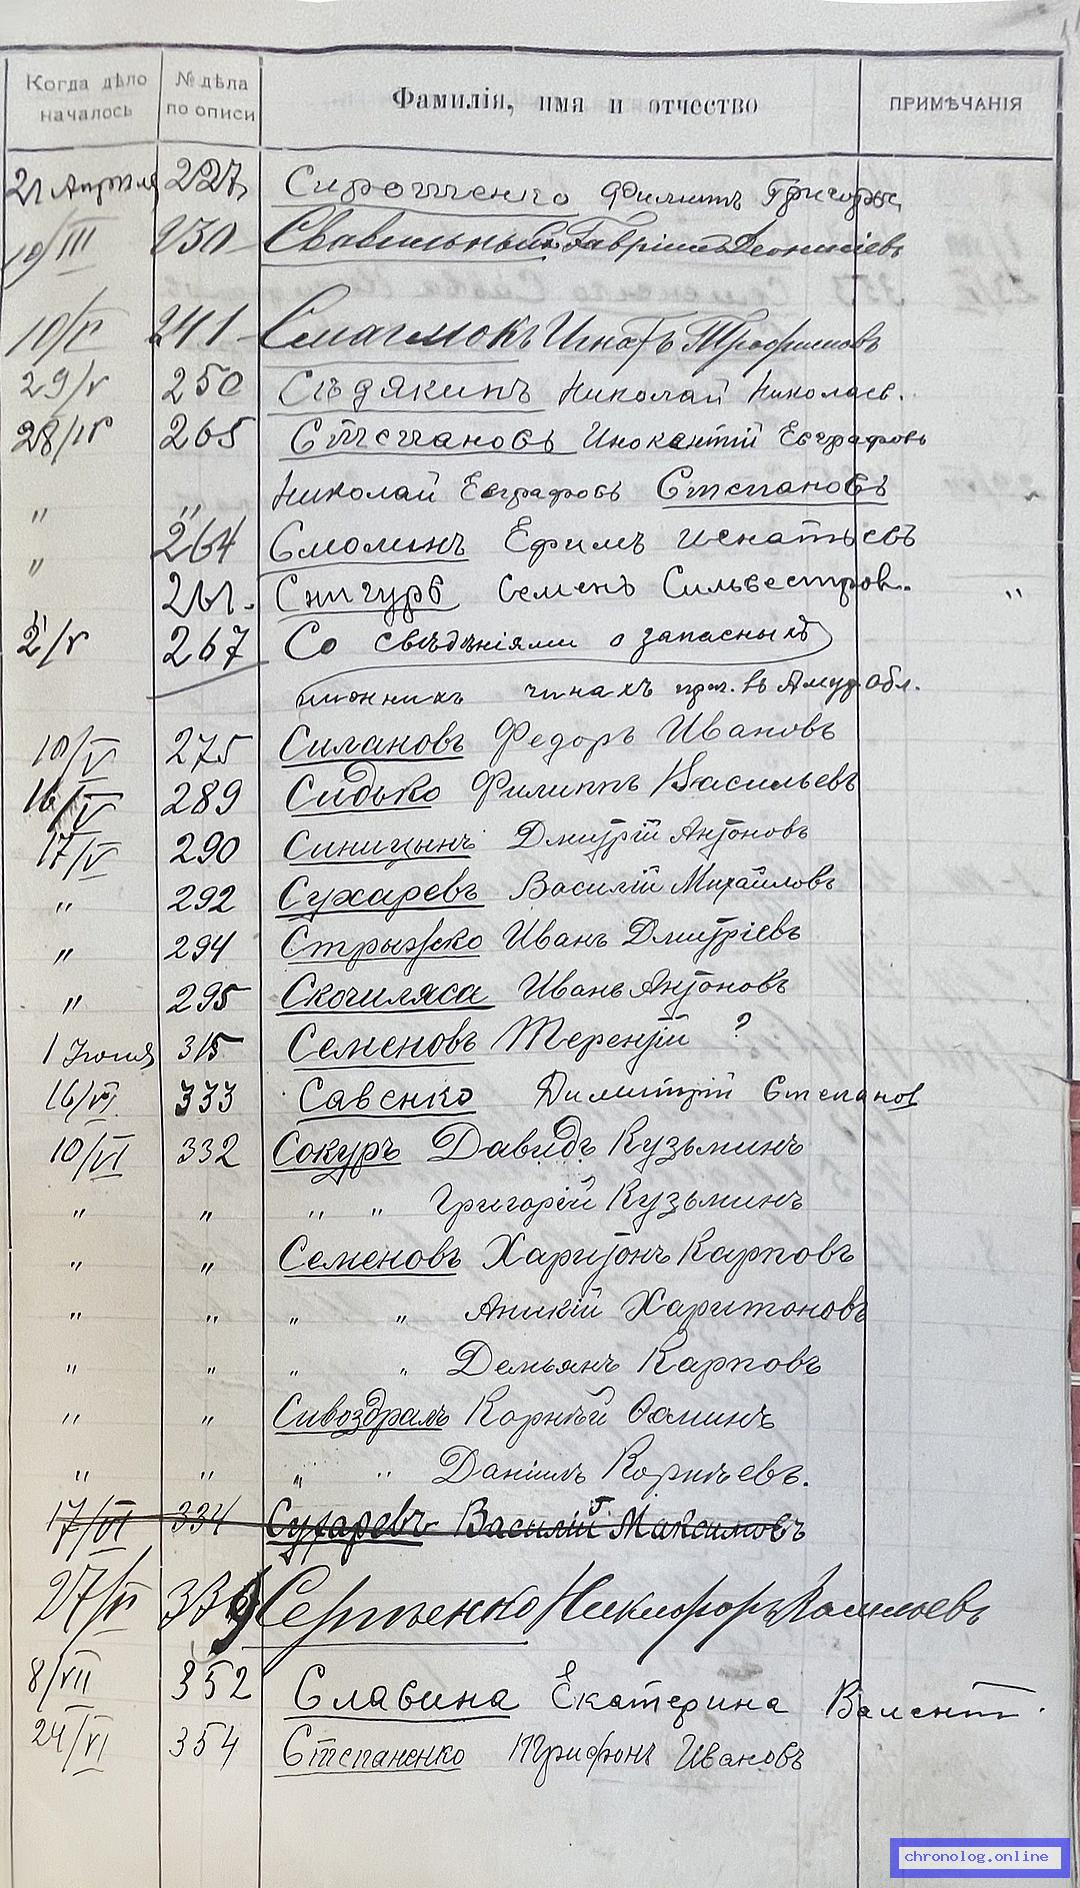 Когда дѣло началось № дѣла по описи Фамилія, имя и отчество ПРИМѢЧАНІЯ
21 Апрѣля 227 Сиротченко Филиппъ Григорьев
19/III 230 Свавильный Гавріилъ Леонтіевъ
10/V 241 Игнатъ Трофимовъ
29/V 250 Сѣдякинъ Николай Николаев.
28/IV 265 Степановъ Инокентій Евграфовъ
" " Николай Евграфовъ Степановъ
" 264 Смолинъ Ефимъ Игнатьевъ
" 261. Снигурь Семенъ Сильвестров. "
2/V 267 Со свѣдѣніями о запасныхъ
нижнихъ чинахъ прож. въ Амур. Обл.
10/V 275 Силановъ Федоръ Ивановъ
16/V 289 Сидько Филиппъ Васильевъ
17/V 290 Синицынъ Дмитрій Антоновъ
" 292 Сухаревъ Василій Михайловъ
" 294 Стрыжко Иванъ Дмитріевъ
" 295 Скочиляса Иванъ Антоновъ
1 Іюня 315 Семеновъ Терентій ?
16/VI 333 Савенко Димитрій Степанов
10/VI 332 Сокуръ Давидъ Кузьминъ
" " " " Григорій Кузьминъ
" " Семеновъ Харитонъ Карповъ
" " " " Аникій Харитоновъ
" " " " Демьянъ Карповъ
" " Сивоздрамъ Корнѣй Фоминъ
" " " " Даніилъ Корнѣевъ.
17/VI 334 Сухаревъ Василій Максимовъ
27/VI 339 Сергѣенко Никифоръ Васильевъ
8/VII 352 Славина Екатерина Валент.
24/VI 354 Степаненко Трифонъ Ивановъ
chronolog.online